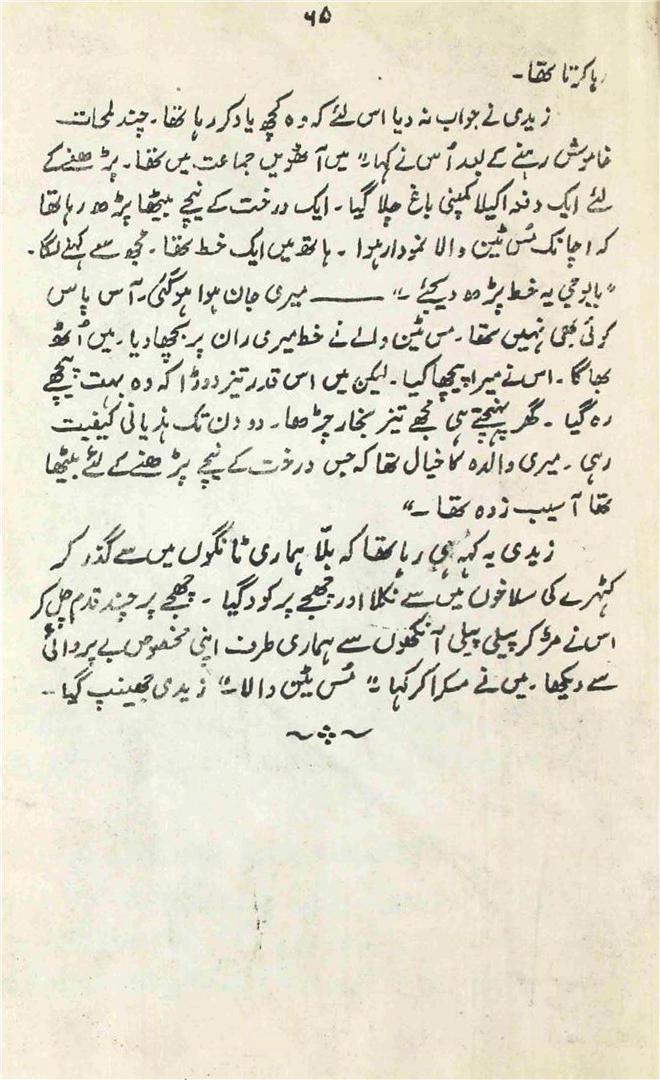 ۶۵
رہا کرتا تھا۔
زیدی نے جواب نہ دیا اس لئے کہ وہ کچھ یاد کر رہا تھا۔ چند لمحات
خاموش رہنے کے بعد اُس نے کہا۔" میں آٹھویں جماعت میں تھا۔ پڑھنے کے
لئے ایک دفعہ اکیلا کمپنی باغ چلا گیا۔ ایک درخت کے نیچے بیٹھا پڑھ رہا تھا
کہ اچانک مُس ٹین والا نمودار ہوا۔ ہاتھ میں ایک خط تھا۔ مجھ سے کہنے لگا۔
"بابو جی یہ خط پڑھ دیجئے۔" ——— میری جان ہوا ہو گئی۔ آس پاس
کوئی بھی نہیں تھا۔ مس ٹین والے نے خط میری ران پر بچھا دیا۔ میں اُٹھ
بھاگا۔ اس نے میرا پیچھا کیا۔ لیکن میں اس قدر تیز دوڑا کہ وہ بہت پیچھے
رہ گیا۔ گھر پہنچتے ہی مجھے تیز بخار چڑھا۔ دو دن تک ہذیانی کیفیت
رہی۔ میری والدہ کا خیال تھا کہ جس درخت کے نیچے پڑھنے کے لئے بیٹھا
تھا آسیب زدہ تھا۔"
زیدی یہ کہہ ہی رہا تھا کہ بلّا ہماری ٹانگوں میں سے گذر کر
کٹہرے کی سلاخوں میں سے نکلا اور چھجے پر کود گیا۔ چھجے پر چند قدم چل کر
اس نے مڑ کر پیلی پیلی آنکھوں سے ہماری طرف اپنی مخصوص بے پروائی
سے دیکھا۔ میں نے مسکرا کر کہا۔" مُس ٹین والا۔" زیدی جھینپ گیا۔